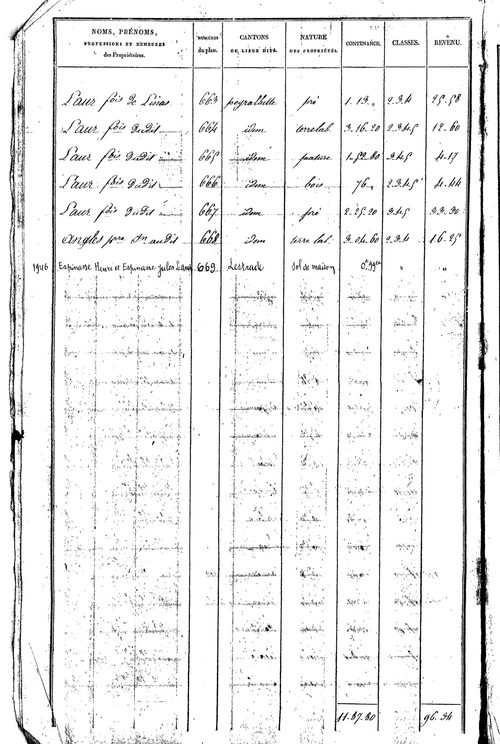 NOMS, PRÉNOMS, PROFESSIONS ET DEMEURES des Propriétaires. NUMÉROS du plan. CANTONS OU LIEUX DITS. NATURE DES PROPRIÉTÉS. CONTENANCE. CLASSES. REVENU.
Laur fois de Lisias 663 pré 1.13 „ 2.3.4 25.58
Laur fois dudit 664 idem terre lab. 3.16.20 2.3.4.5 12.60
Laur fois dudit 665 idem pature 1.52.80 3.4.5 4.17
Laur fois dudit 666 idem bois 76 „ 2.3.4.5 4.44
Laur fois dudit 667 idem pré 2.25.20 3.4.5 33.30
Angles pre Jn audit 668 idem terre lab. 3.04.60 2.3.4 16.25
1946 Espinasse Henri et Espinasse Jules 669 Lestrade Sol de maison „ „
11.87.80 96.34